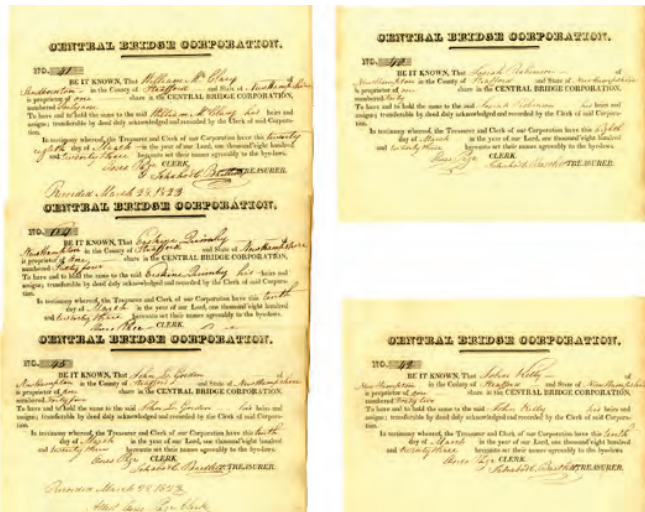 CENTRAL BRIDGE CORPORATION.
NO. 41
BE IT KNOWN, That William M'Clary of
in the County of Strafford and State of New Hampshire
is proprietor of one share in the CENTRAL BRIDGE CORPORATION,
numbered
To have and to hold the same to the said William M'Clary his heirs and
assigns; transferible by deed duly acknowledged and recorded by the Clerk of said Corpora-
tion.
In testimony whereof, the Treasurer and Clerk of our Corporation have this twenty
eighth day of March in the year of our Lord, one thousand eight hundred
and twenty three hereunto set their names agreeably to the bye-laws.
CLERK.
TREASURER.
Recorded March 28, 1823
CENTRAL BRIDGE CORPORATION.
NO.
BE IT KNOWN, That Erskine Quimby of
New Hampton in the County of Strafford and State of New Hampshire
is proprietor of one share in the CENTRAL BRIDGE CORPORATION,
numbered four
To have and to hold the same to the said Erskine Quimby his heirs and
assigns; transferible by deed duly acknowledged and recorded by the Clerk of said Corpora-
tion.
In testimony whereof, the Treasurer and Clerk of our Corporation have this tenth
day of March in the year of our Lord, one thousand eight hundred
and twenty three hereunto set their names agreeably to the bye-laws.
CLERK.
CENTRAL BRIDGE CORPORATION.
NO. 45
BE IT KNOWN, That John Gordon of
New Hampton in the County of Strafford and State of New Hampshire
is proprietor of one share in the CENTRAL BRIDGE CORPORATION,
numbered
To have and to hold the same to the said John Gordon his heirs and
assigns; transferible by deed duly acknowledged and recorded by the Clerk of said Corpora-
tion.
In testimony whereof, the Treasurer and Clerk of our Corporation have this tenth
day of March in the year of our Lord, one thousand eight hundred
and twenty three hereunto set their names agreeably to the bye-laws.
CLERK.
TREASURER.
Recorded March 28, 1823
Attest Clerk
CENTRAL BRIDGE CORPORATION.
NO. 40
BE IT KNOWN, That Josiah Robinson of
New Hampton in the County of Strafford and State of New Hampshire
is proprietor of one share in the CENTRAL BRIDGE CORPORATION,
numbered forty
To have and to hold the same to the said Josiah Robinson his heirs and
assigns; transferible by deed duly acknowledged and recorded by the Clerk of said Corpora-
tion.
In testimony whereof, the Treasurer and Clerk of our Corporation have this eighth
day of March in the year of our Lord, one thousand eight hundred
and twenty three hereunto set their names agreeably to the bye-laws.
CLERK.
TREASURER.
CENTRAL BRIDGE CORPORATION.
NO. 42
BE IT KNOWN, That John Kelly of
New Hampton in the County of Strafford and State of New Hampshire
is proprietor of one share in the CENTRAL BRIDGE CORPORATION,
numbered Forty two
To have and to hold the same to the said John Kelly his heirs and
assigns; transferible by deed duly acknowledged and recorded by the Clerk of said Corpora-
tion.
In testimony whereof, the Treasurer and Clerk of our Corporation have this tenth
day of March in the year of our Lord, one thousand eight hundred
and twenty three hereunto set their names agreeably to the bye-laws.
CLERK.
TREASURER.